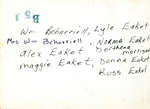 Wm Beharriell, Lyle Eaket
Mrs Wm Beharriell, Norma Eaket
alex Eaket, Dorthena
maggie Eaket, Donna Eaket
Russ Eaket